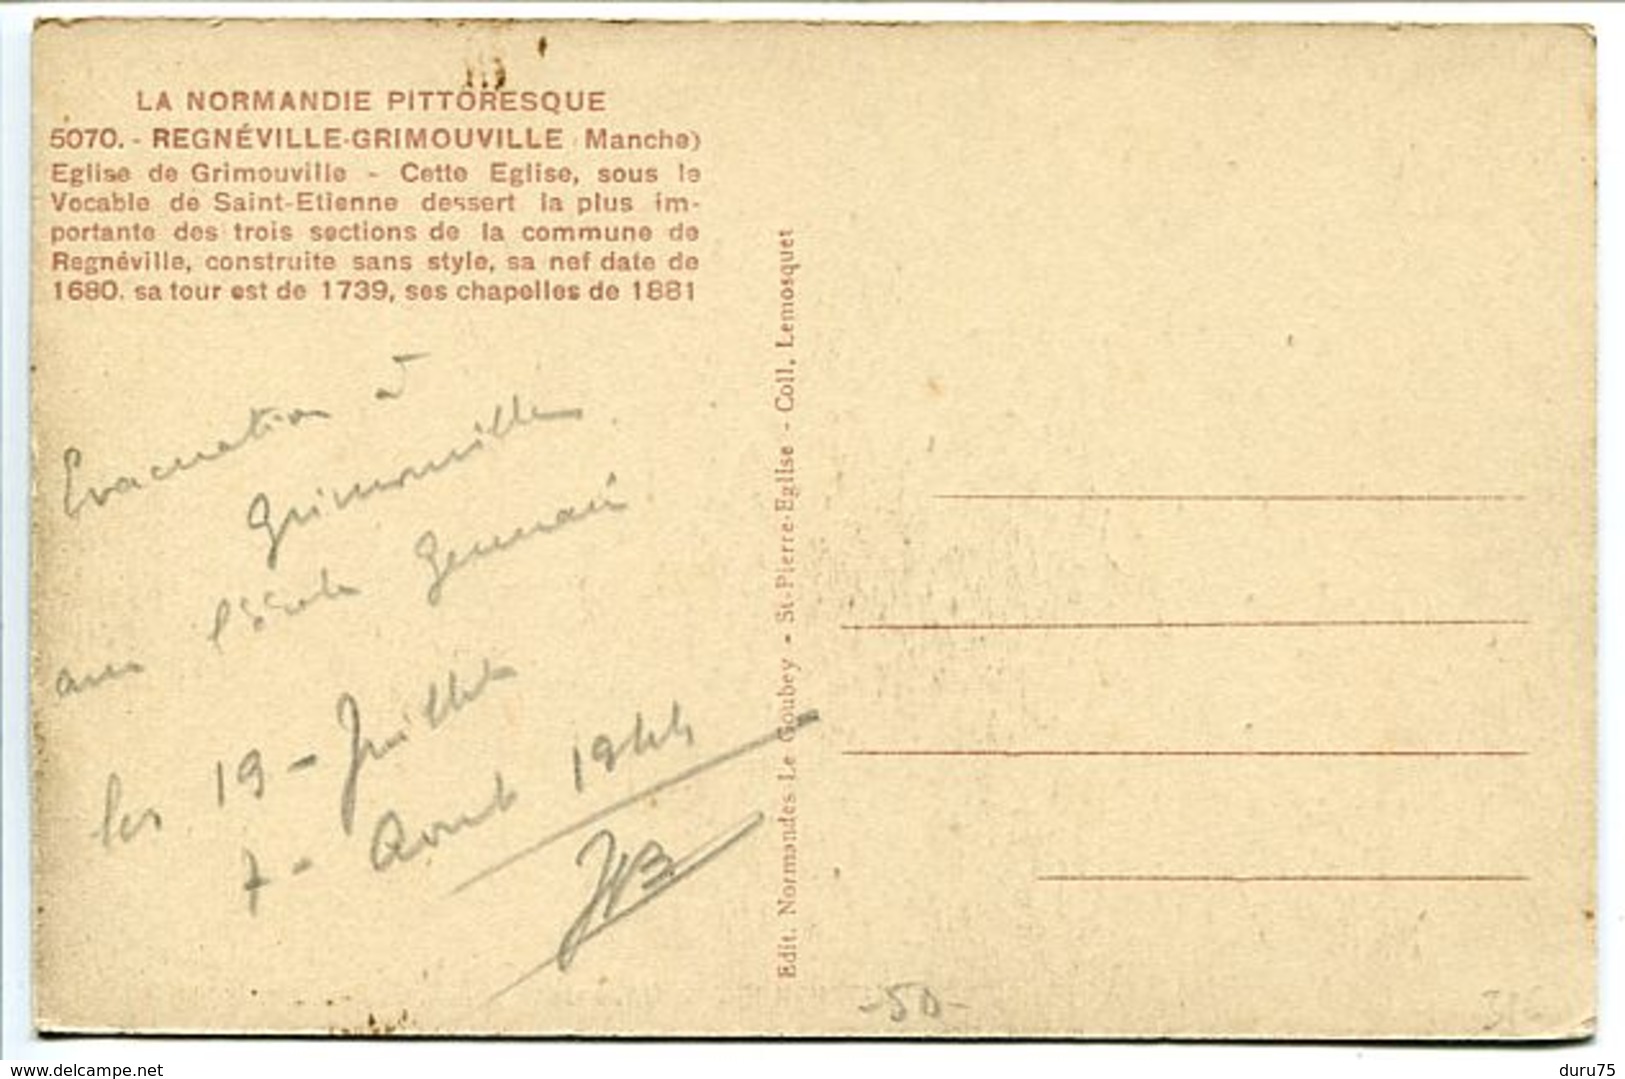 LA NORMANDIE PITTORESQUE
5070. - REGNÉVILLE-GRIMOUVILLE Manche)
Eglise de Grimouville - Cette Eglise, sous le
Vocable de Saint-Etienne dessert la plus im-
portante des trois sections de la commune de
Regnéville, construite sans style, sa nef date de
1680. sa tour est de 1739, ses chapelles de 1881
Evacuation à
Grimouville
avec l'école
les 19 - Juillet
7 - Aout 1944
Edit. Normandes Le Goubey - St-Pierre-Eglise - Coll. Lemosquet
- 50 -
www.delcampe.net
duru75